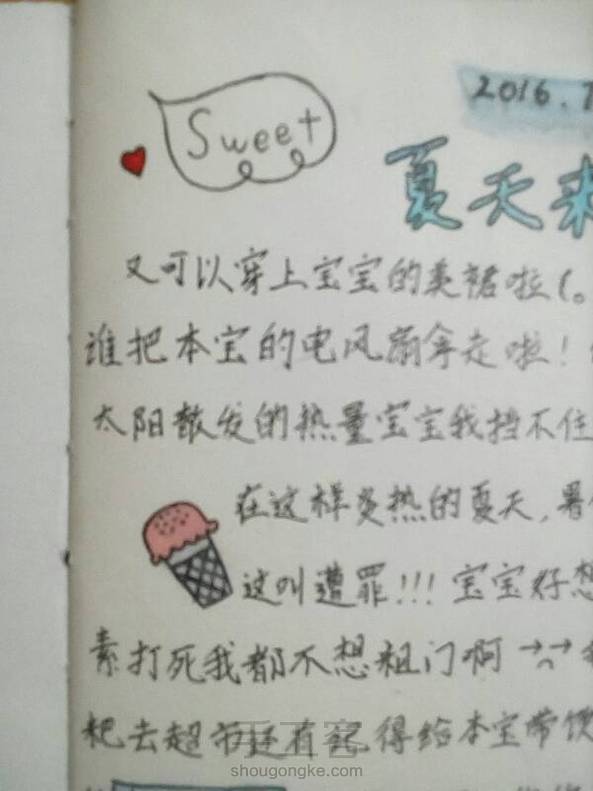 Sweet
2016.7
夏天来
又可以穿上宝宝的美裙啦(。
谁把本宝的电风扇拿走啦!
太阳散发的热量宝宝我挡不住
在这样炎热的夏天,暑
这叫遭罪!!! 宝宝好想
素打死我都不想粗门啊
粑去超市还有記得给本宝带
手工客
shougongke.com